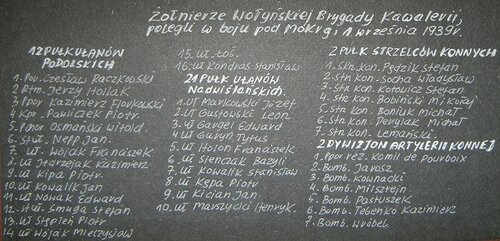 Żołnierze Wołyńskiej Brygady Kawalerii,
polegli w boju pod Mokrą, 1 września 1939r.
12 PUŁK UŁANÓW
PODOLSKICH
1. Por. Czesław Raczkowski
2. Rtm. Jerzy Hollak
3. Ppor Kazimierz
4. Kpr. Pawliczek Piotr.
5. Pdhor Osmański Witold.
6. st.uł. Nepp Jan.
7. uł. Wojak Franaszek
8. uł. Jedrzejak Kazimierz
9. uł. Kipa Piotr
10. uł Kowalik Jan
11. uł Nowak Edward
12. st.uł. Smuga Stefan
13. uł Stępień Piotr
14. uł Wójak Mieczysław
15. uł Łoś.
16. uł Kondraś Stanisław
21 PUŁK UŁANÓW
Nadwiślańskich.
1. uł Markowski Józef
2. uł Gustowski Leon
3. uł Gawgel Edward
4. uł Guryn Tytus
5. uł Holon Franaszek
6. uł Sienczak Bazyli
7. uł Kowalik Stanisław
8. uł Kępa Piotr
9. uł Kician Jan
10. uł Marszycki Henryk.
2 PUŁK STRZELCÓW KONNYCH
1. Skr. kon. Pędzik Stefan
2. Stn kon. Socha Władysław
3. Stn kon. Kotowicz Stefan
4. Stn kon. Bobiński Mikołaj
5. Stn kon. Boniuk Michał
6. Stn kon. Michał
7. Stn kon. Lemański.
2 DYWIZJON ARTYLERII KONNEJ
1. Ppor rez. Kamil de Pourbaix
2. Bomb. Jarosz
3. Bomb. Kownacki
4. Bomb. Milsztejn
5. Bomb. Pastuszek
6. Bomb. Tebenko Kazimierz
7. Bomb. Wróbel